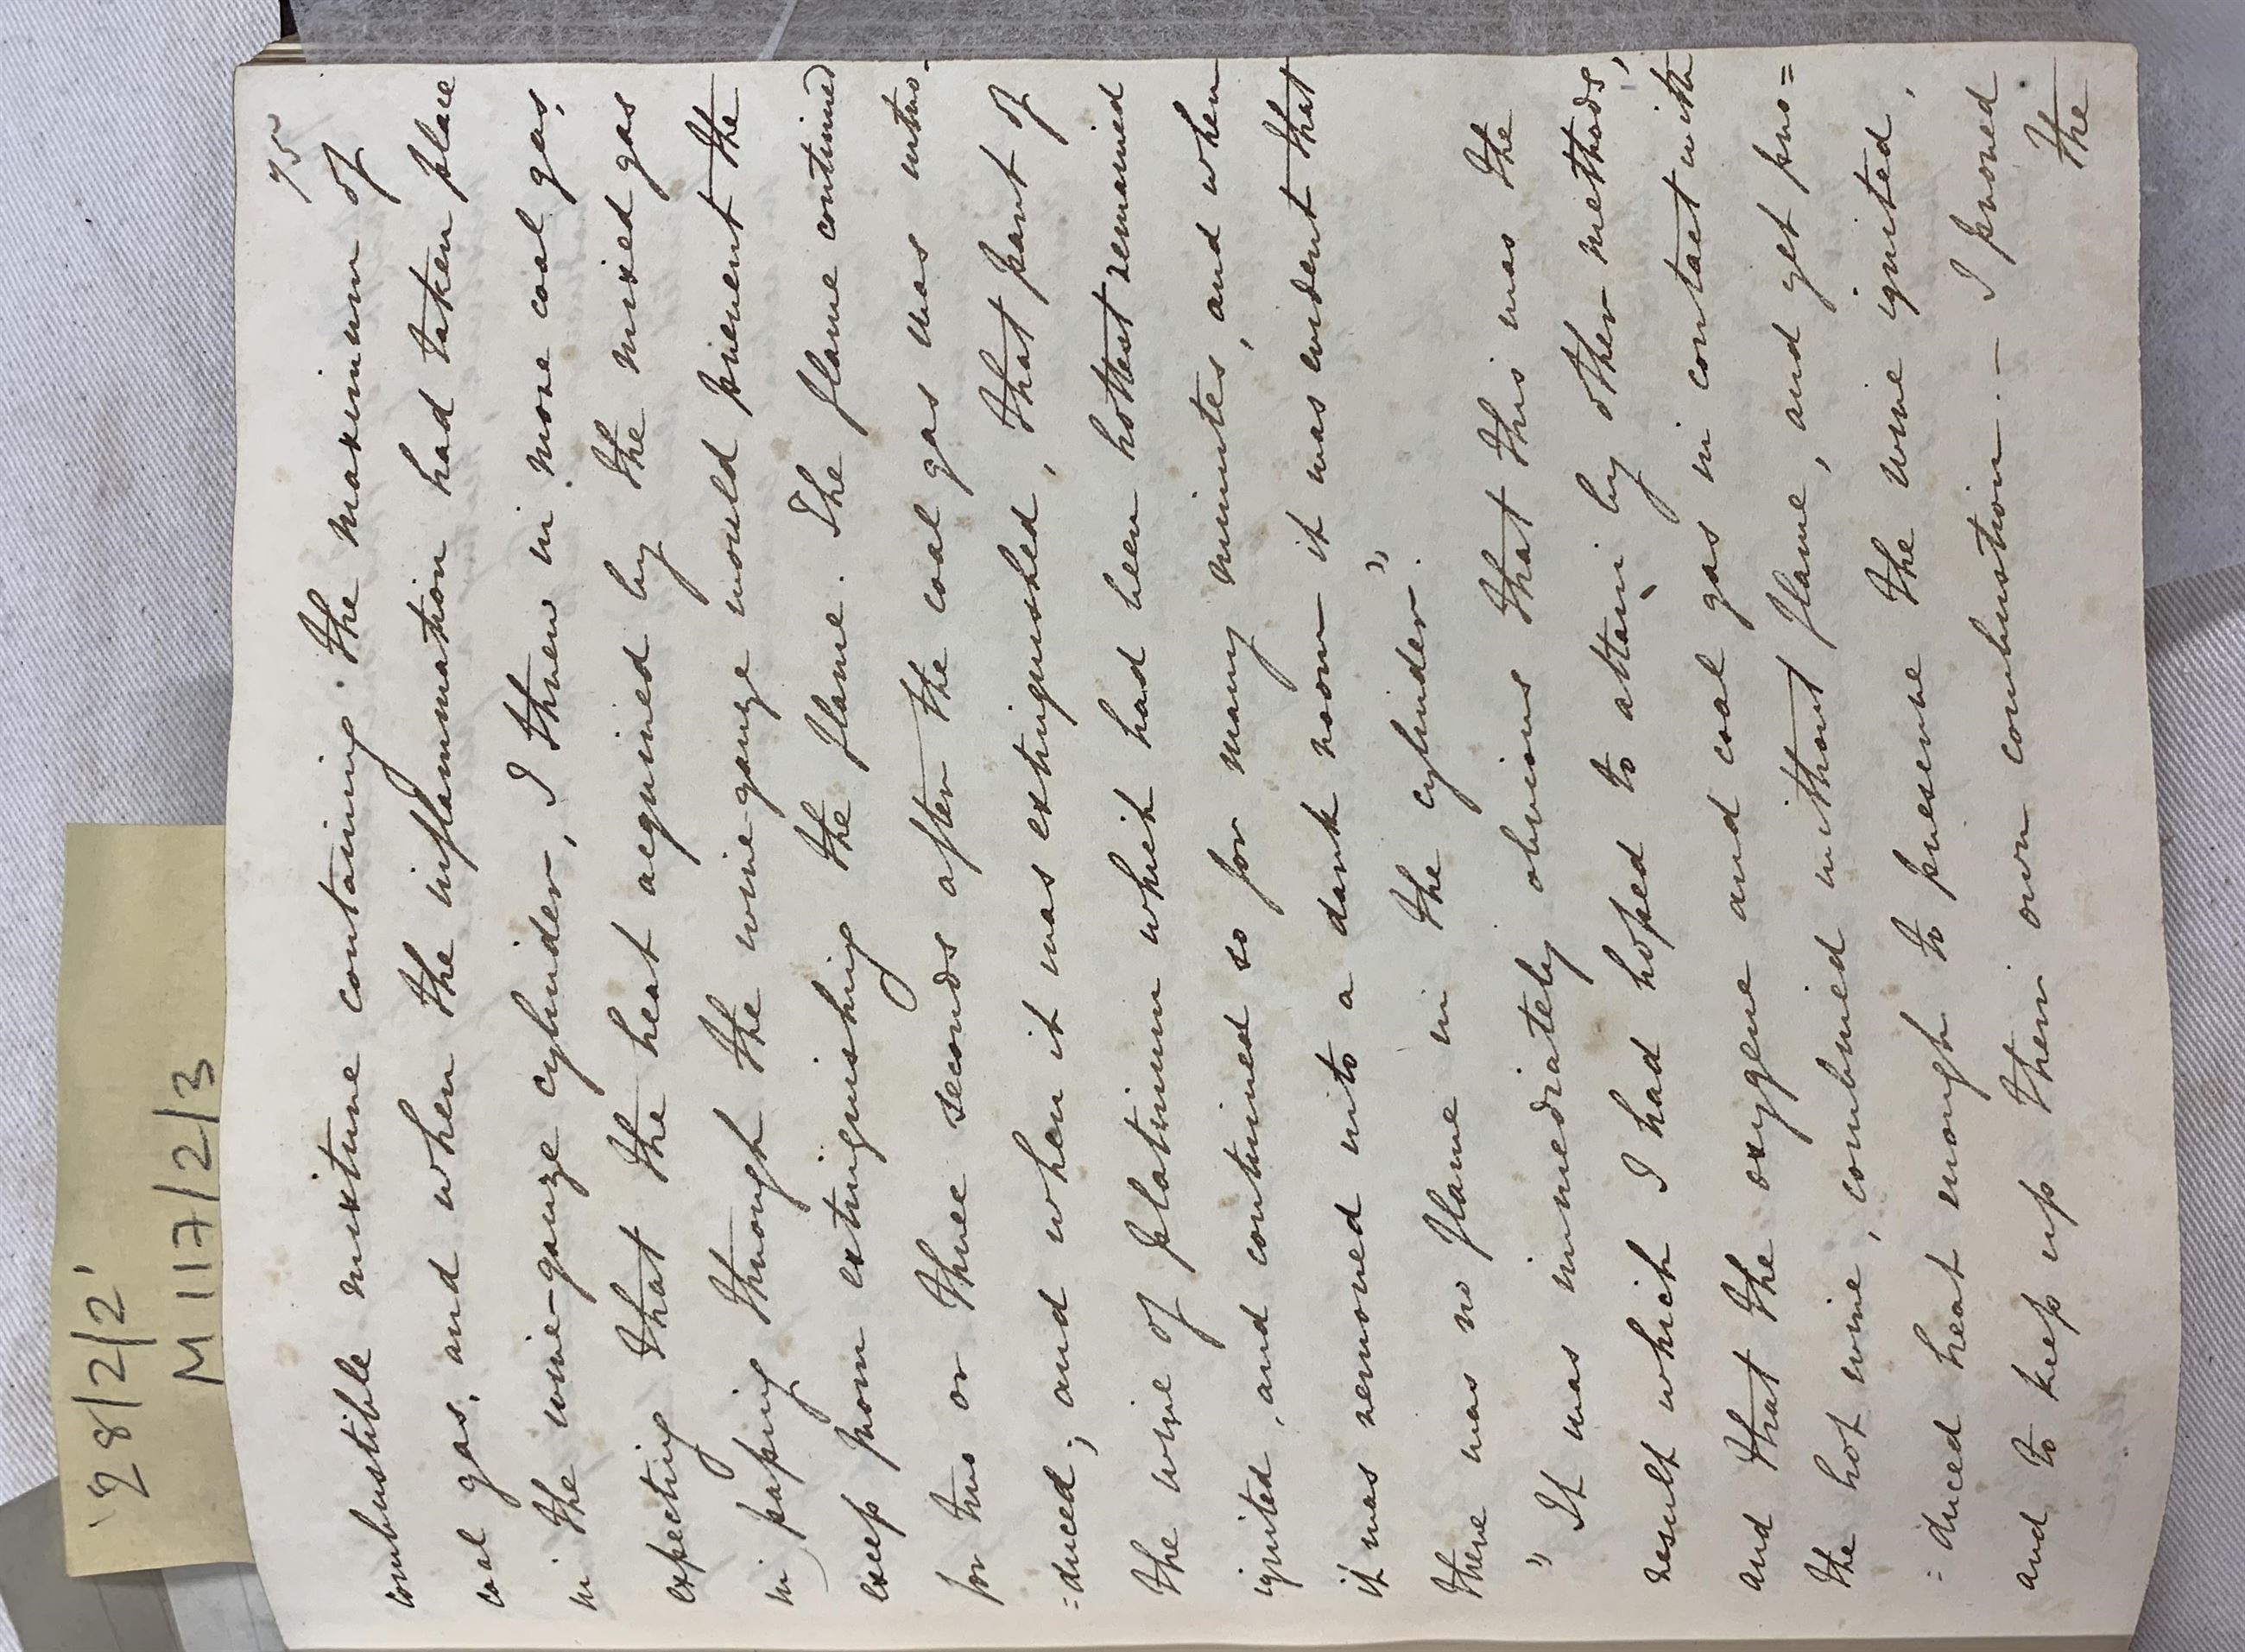 '28/2/2'
M117/2/3
75
combustible mixture containing the maximum of
coal gas, and when the inflammation had taken place
in the wire-gauze cylinder, I threw in more coal gas,
expecting that the heat acquired by the mixed gas
in passing through the wire gauze would prevent the
excess from extinguishing the flame. The flame continued
for two or three seconds after the coal gas was intro-
=duced; and when it was extinguished, that part of
the wire of platinum which had been hottest remained
ignited, and continued so for many minutes, and when
it was removed into a dark room it was evident that
there was no flame in the cylinder."
" It was immediately obvious that this was the
result which I had hoped to attain by other methods,
and that the oxygene and coal gas in contact with
the hot wire, combined without flame, and yet pro=
=duced heat enough to preserve the wire ignited,
and to keep up their own combustion. — I proved
the